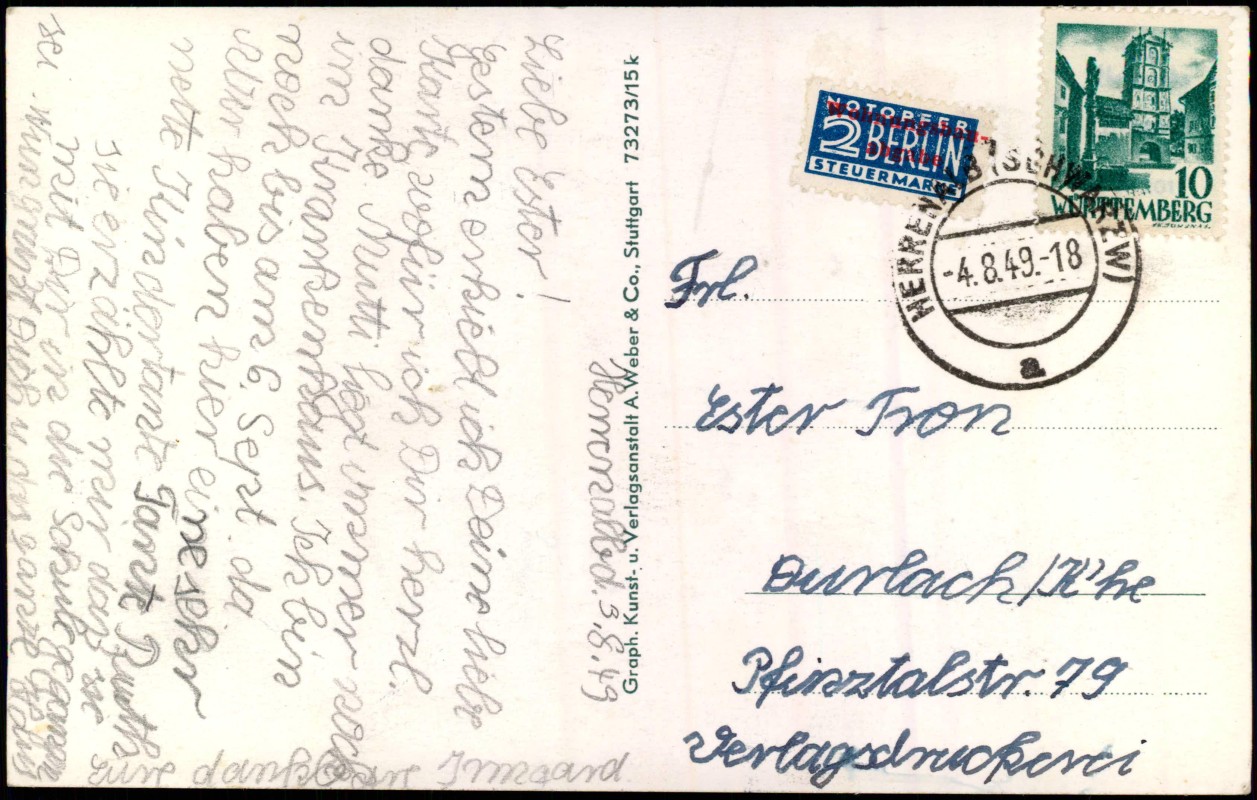 Herrenalb d. 3.8.49
Liebe Ester!
Gestern erhielt ich Deine liebe
Karte wofür ich Dir herzl.
danke Mutti liegt immer noch
im Krankenhaus. Ich bin
noch bis am 6. Sept. da
Wir haben hier eine sehr
nette Kindertante Tante Ruth
sie erzählte mir daß sie
mit Dir in die Schule gegangen
sei. Nun grüßt Dich u. das ganze Haus
Eure dankbare Irmgard
Graph. Kunst- u. Verlagsanstalt A. Weber & Co., Stuttgart 73273/15 k
NOTOPFER
2 BERLIN
STEUERMARKE
Wohnungsbau-
abgabe
10
WÜRTTEMBERG
HERRENALB (SCHWARZW)
-4.8.49.-18
a
Frl.
Ester Tron
Durlach/K'he
Pfinztalstr. 79
Verlagsdruckerei